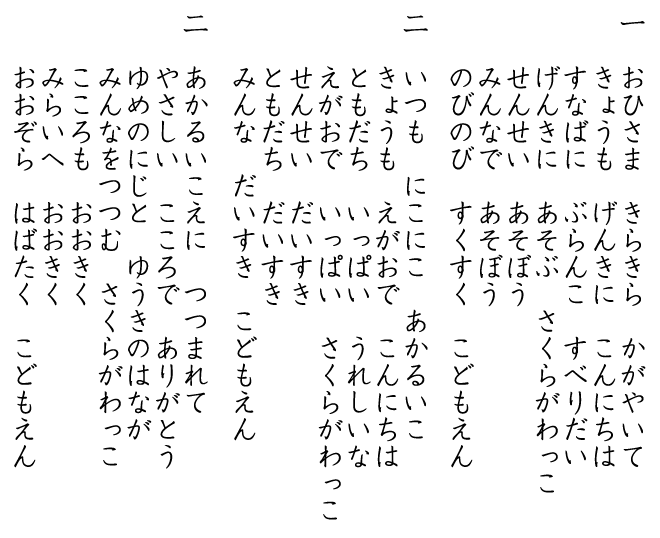 一
おひさま　きらきら　かがやいて
きょうも　げんきに　こんにちは
すなばに　ぶらんこ　すべりだい
げんきに　あそぶ　さくらがわっこ
せんせい　あそぼう
みんなで　あそぼう
のびのび　すくすく　こどもえん
二
いつも　にこにこ　あかるいこ
きょうも　えがおで　こんにちは
ともだち　いっぱい　うれしいな
えがおで　いっぱい　さくらがわっこ
せんせい　だいすき
ともだち　だいすき
みんな　だいすき　こどもえん
二
あかるいこえに　つつまれて
やさしい　こころで　ありがとう
ゆめのにじと　ゆうきのはなが
みんなをつつむ　さくらがわっこ
こころも　おおきく
みらいへ　おおきく
おおぞら　はばたく　こどもえん